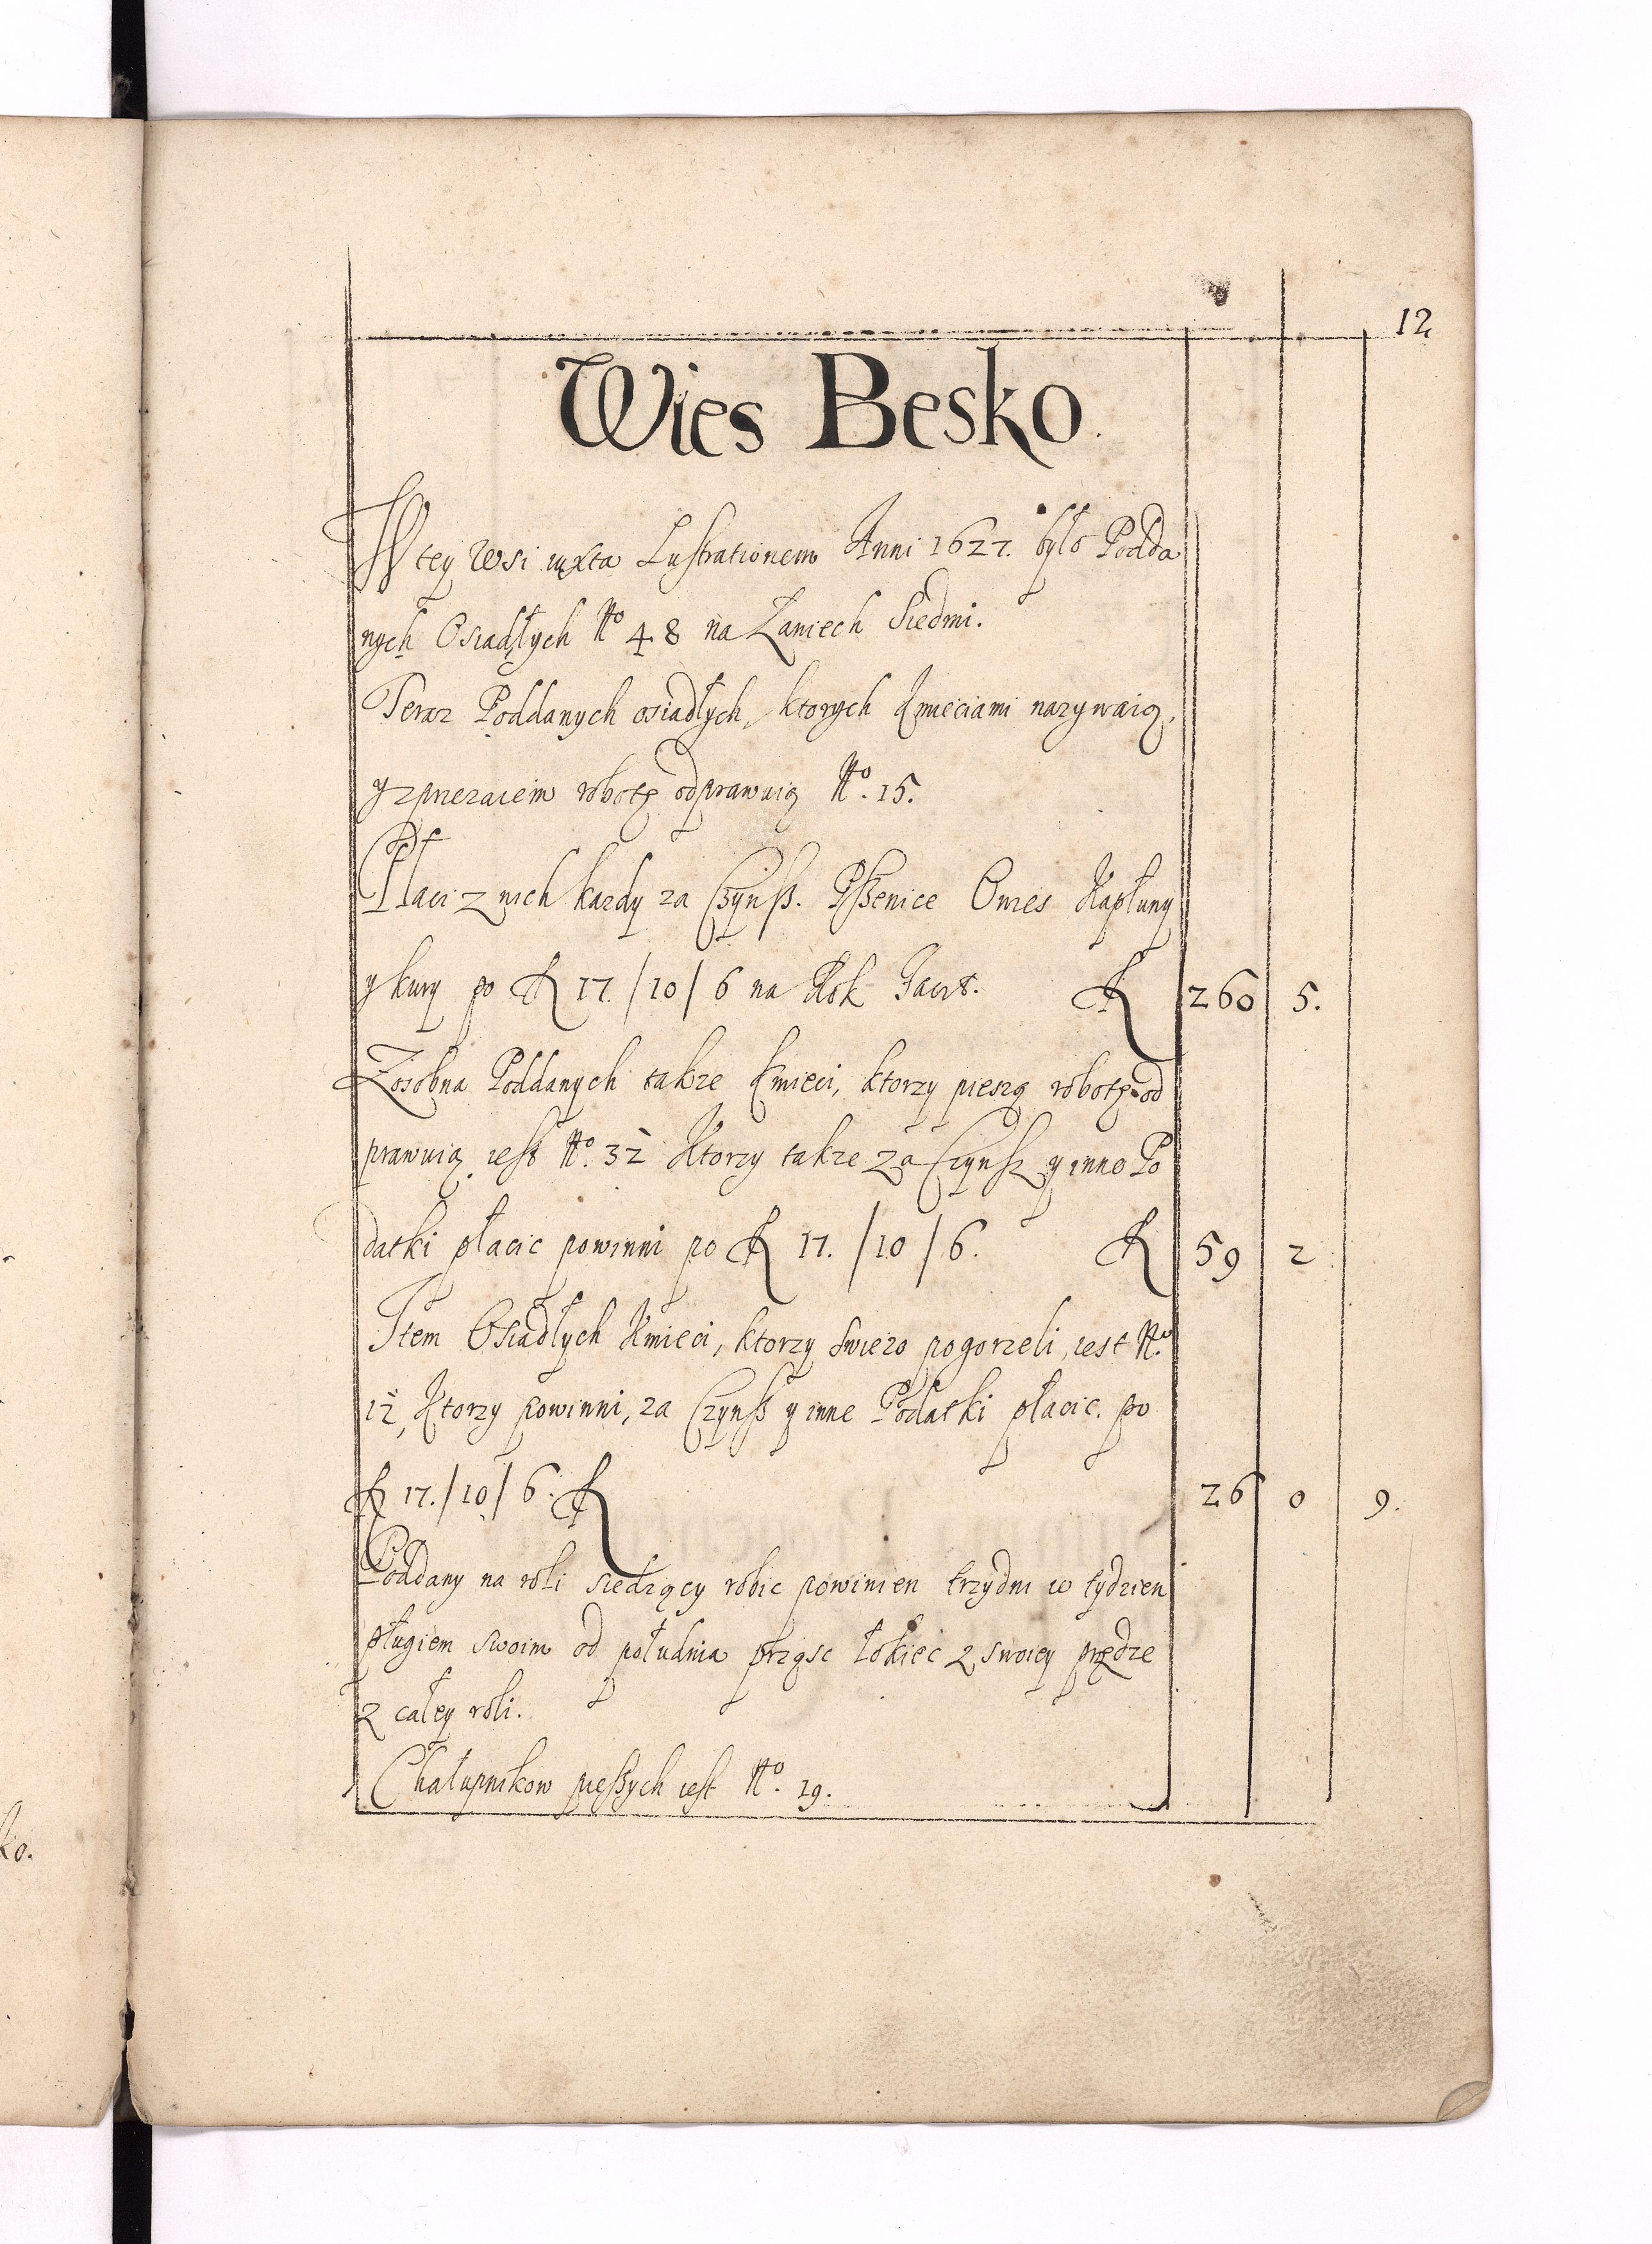 12
Wies Besko.
W tey Wsi iuxta Lustrationem Anni 1627. było Podda
nych Osiadłych No 48 na Łaniech Siedmi.
Teraz Poddanych osiadłych, ktorych Kmieciami nazywaią,
y zprzezaiem robotę odprawuią No. 15.
Płaci z nich kazdy za Czynß. Pßenice Owies Kapłuny
y kury po fl 17./10/6 na Rok facit. fl 260 5.
Zosobna Poddanych takze Kmieci, ktorzy pieszą robotę od
prawuią iest No. 32 Ktorzy takze za Czynsz y inne Po
datki płacic powinni po fl 17./10/6. fl 59 2
Item Osiadłych Kmieci, ktorzy swiezo pogorzeli, iest No.
12, Ktorzy powinni, za Czynß y inne Podatki płacic. po
fl 17./10/6. fl 26 0 9.
Poddany na roli siedzący robic powinien trzy dni w tydzien
pługiem swoim od południa prząsc łokiec z swoiey prządze
z całey roli.
Chałupnikow pießych iest No. 19.
ko.